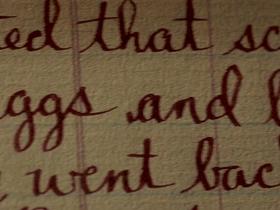 ted that sc
ggs and l
went bac